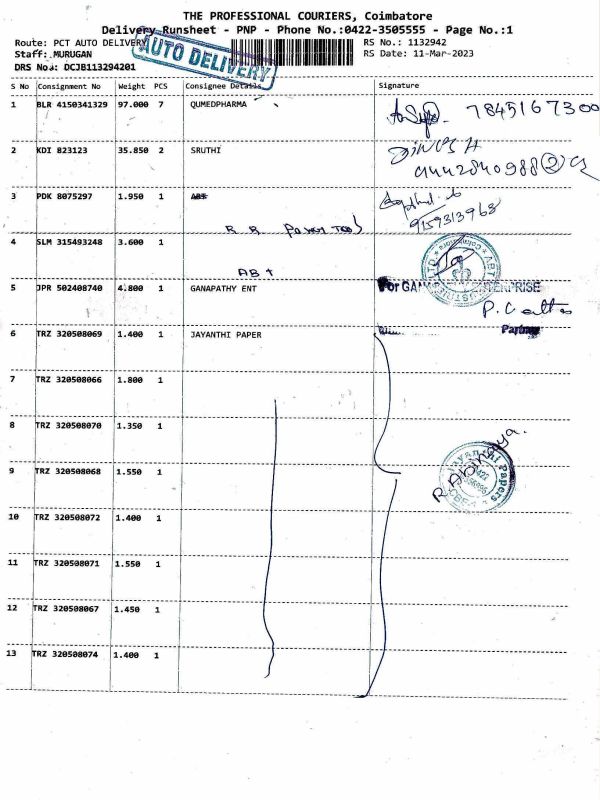 THE PROFESSIONAL COURIERS, Coimbatore
Delivery Runsheet - PNP - Phone No.:0422-3505555 - Page No.:1
Route: PCT AUTO DELIVERY
RS No.: 1132942
Staff: MURUGAN
RS Date: 11-Mar-2023
DRS No.: DCJB113294201
AUTO DELIVERY
S No Consignment No Weight PCS Consignee Details Signature
1 BLR 4150341329 97.000 7 QUMEDPHARMA 7845167300
2 KDI 823123 35.850 2 SRUTHI
3 PDK 8075297 1.950 1 ABT
9159313968
R R
4 SLM 315493248 3.600 1
ABT
5 JPR 502408740 4.800 1 GANAPATHY ENT
For GANAPATHY ENTERPRISE
Partner
6 TRZ 320508069 1.400 1 JAYANTHI PAPER
7 TRZ 320508066 1.800 1
8 TRZ 320508070 1.350 1
R. Abinaya.
Jayanthi Papers
9 TRZ 320508068 1.550 1
10 TRZ 320508072 1.400 1
11 TRZ 320508071 1.550 1
12 TRZ 320508067 1.450 1
13 TRZ 320508074 1.400 1